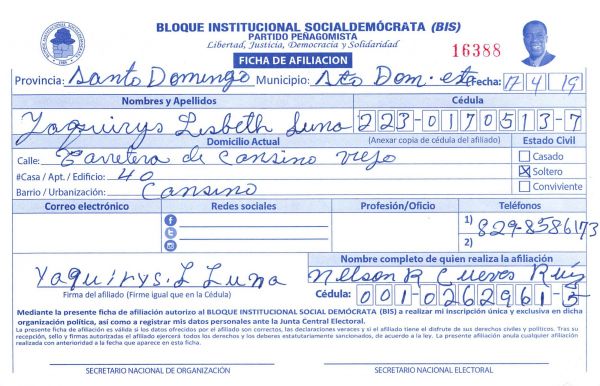 BLOQUE INSTITUCIONAL SOCIALDEMÓCRATA (BIS)
PARTIDO PEÑAGOMISTA
Libertad, Justicia, Democracia y Solidaridad
FICHA DE AFILIACION
16388
Provincia: Santo Domingo Municipio: Sto Dom. este Fecha: 17 4 19
Nombres y Apellidos Cédula
Yaquirys Lisbeth Luna 223-0170513-7
Domicilio Actual (Anexar copia de cédula del afiliado) Estado Civil
Calle: Carretera de Cansino viejo Casado
#Casa / Apt. / Edificio: 40 Soltero
Barrio / Urbanización: Cansino Conviviente
Correo electrónico Redes sociales Profesión/Oficio Teléfonos
1) 829-8586173
2)
Nombre completo de quien realiza la afiliación
Yaquirys. L Luna Nelson R Cuevas Ruiz
Firma del afiliado (Firme igual que en la Cédula) Cédula: 001-0262961-
Mediante la presente ficha de afiliación autorizo al BLOQUE INSTITUCIONAL SOCIAL DEMÓCRATA (BIS) a realizar mi inscripción única y exclusiva en dicha
organización política, así como a registrar mis datos personales ante la Junta Central Electoral.
La presente ficha de afiliación es válida si los datos ofrecidos por el afiliado son correctos, las declaraciones veraces y si el afiliado tiene el disfrute de sus derechos civiles y políticos. Tras su
recepción, sello y firmas autorizadas el afiliado ejercerá todos los derechos y los deberes estatutariamente sancionados, de acuerdo a la ley. La presente afiliación anula cualquier afiliación
realizada con anterioridad a la fecha que aparece en esta ficha.
SECRETARIO NACIONAL DE ORGANIZACIÓN SECRETARIO NACIONAL ELECTORAL